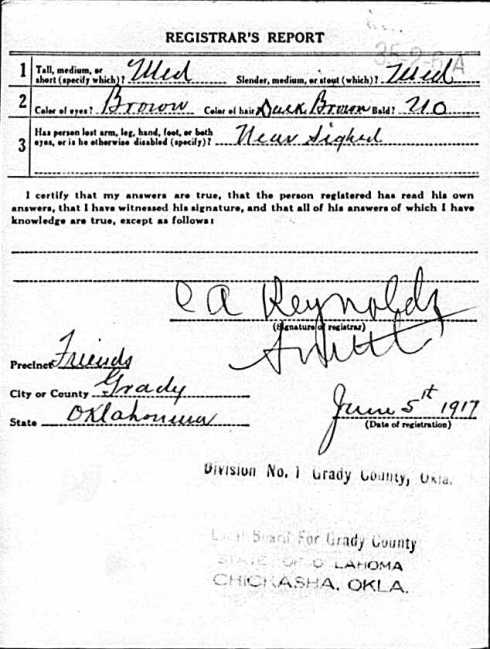 REGISTRAR'S REPORT
35-2-6 A
1 Tall, medium, or short (specify which)? Med Slender, medium, or stout (which)? Med
2 Color of eyes? Brown Color of hair Dark Brown Bald? No
3 Has person lost arm, leg, hand, foot, or both eyes, or is he otherwise disabled (specify)? Near Sighed
I certify that my answers are true, that the person registered has read his own
answers, that I have witnessed his signature, and that all of his answers of which I have
knowledge are true, except as follows:
C A Reynolds
(Signature of registrar)
Precinct Friends
City or County Grady
State Oklahoma
June 5st 1917
(Date of registration)
Division No. 1 Grady County, Okla.
Local Board For Grady County
STATE OF OKLAHOMA
CHICKASHA, OKLA.